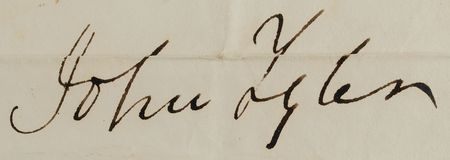 John Tyler